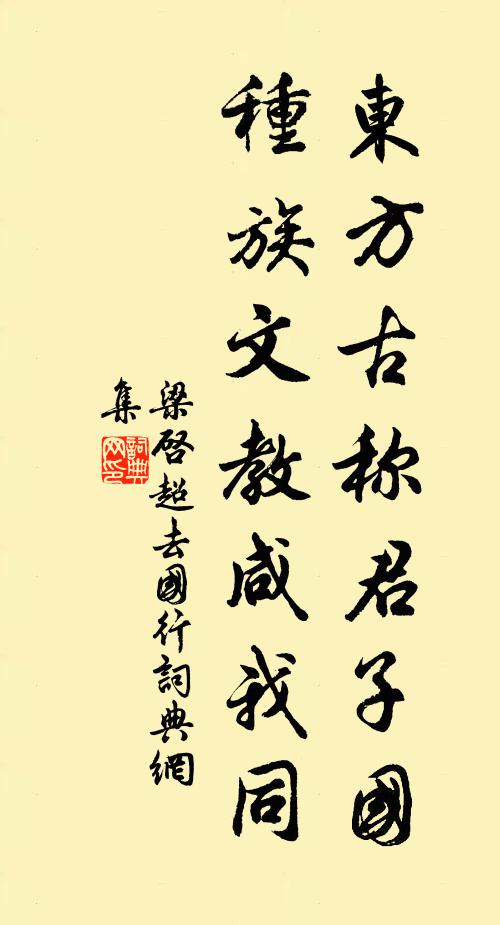 東方古称君子國
種族文教咸我同
梁啓超去國行詞典網
集
詞典網印